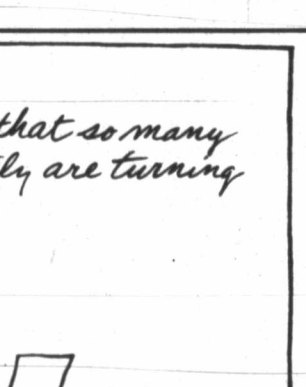 that so many
ly are turning